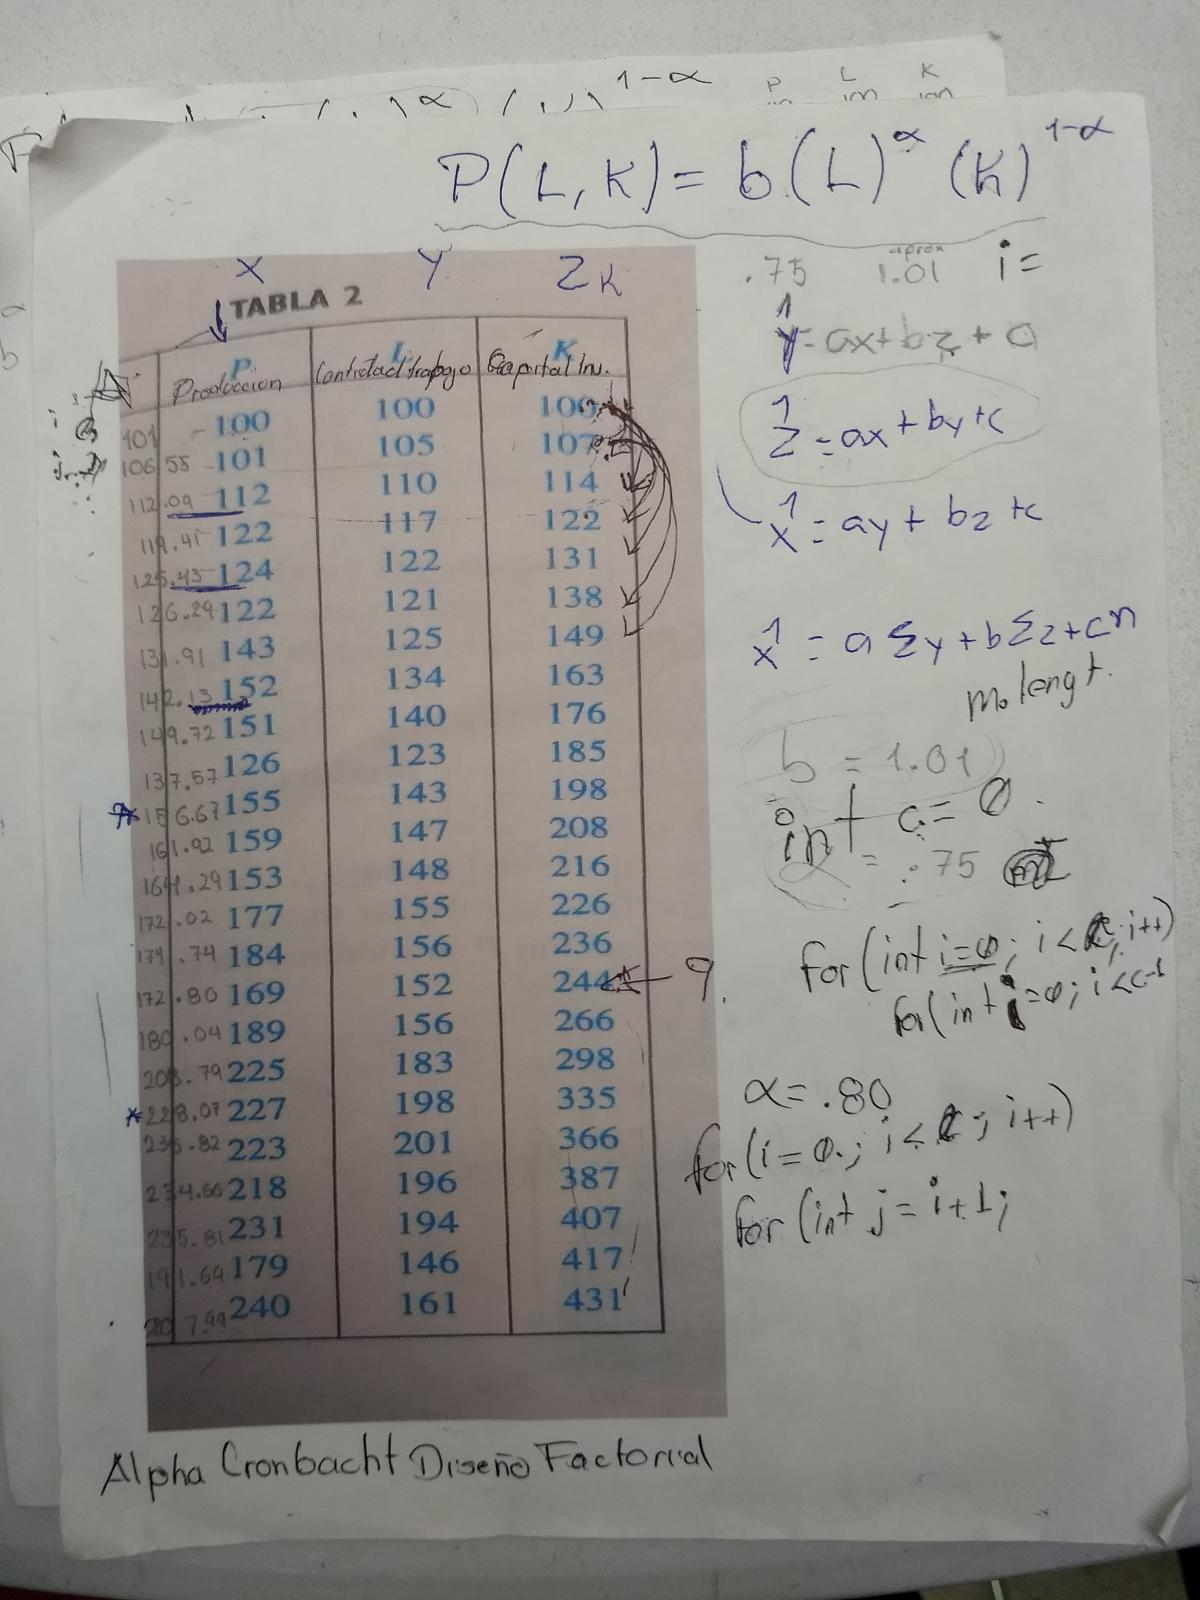 1-α
P L K
P(L,K)= b(L)^α (K)^1-α
X Y Z K
.75 aprox 1.01 i=
TABLA 2
ŷ=ax+bz+c
P L K
Produccion Cantidad trabajo Capital Inv.
ẑ=ax+by+c
x̂=ay+bz+c
101 100 100 100
106.55 101 105 107
112.09 112 110 114
119.41 122 117 122
125.43 124 122 131
126.29 122 121 138
131.91 143 125 149
142.13 152 134 163
149.72 151 140 176
137.57 126 123 185
156.67 155 143 198
161.92 159 147 208
164.29 153 148 216
172.02 177 155 226
174.74 184 156 236
172.80 169 152 244 ← 9.
180.04 189 156 266
208.79 225 183 298
228.07 227 198 335
235.82 223 201 366
234.66 218 196 387
235.81 231 194 407
191.69 179 146 417
207.99 240 161 431
x̂ = a Σy + bΣz+cn
b = 1.01
int c= 0.
α = .75
for (int i=0; i<c; i++)
for(int j=0; i<c-1
α=.80
for(i=0.; i<c; i++)
for (int j=i+1;
Alpha Cronbacht Diseño Factorial